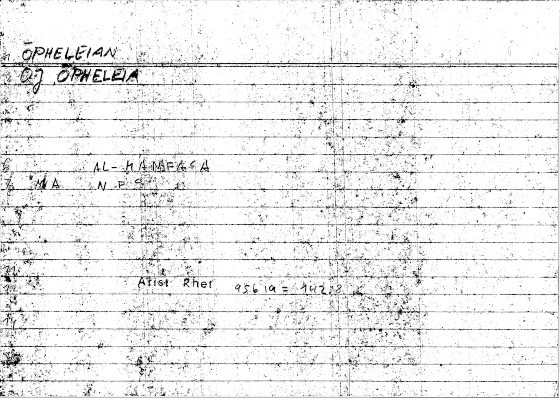 ŌPHELEIAN
Oj ŌPHELEIA
AL-MANFAʿA
MA N F ʿ
Arist Rhet 956 1a = 142:8